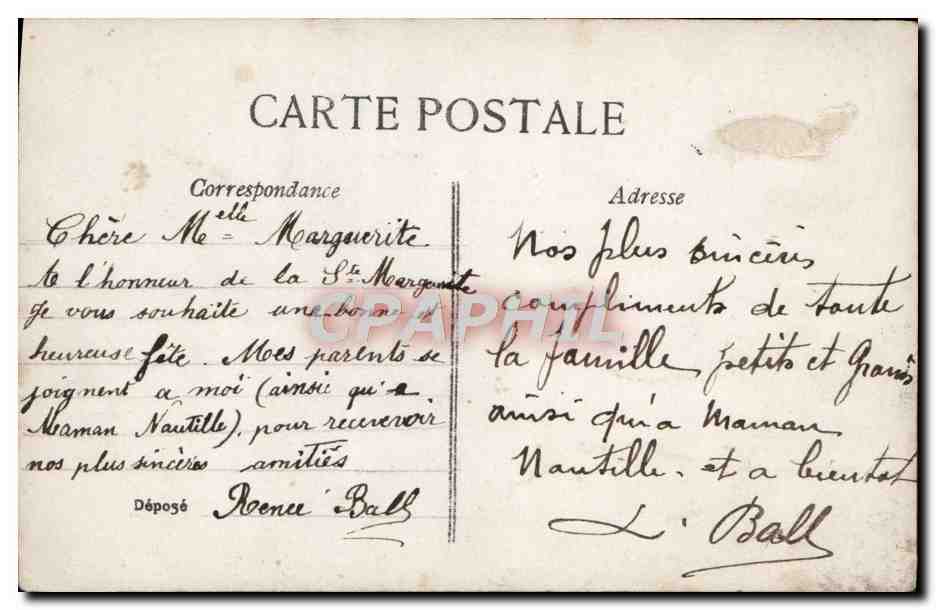 CARTE POSTALE
Correspondance
Chère Melle Marguerite
te l'honneur de la Ste Marguerite
Je vous souhaite une bonne et
heureuse fête. Mes parents se
joignent a moi (ainsie qu'a
Maman Nautille), pour recevevoir
nos plus sincères amitiés
Déposé Renée Ball
Adresse
Nos plus sincères
compliments de toute
la famille, petits et Grands
ainsi qu'a Maman
Nautille. et a bientot
L. Ball
CPAPHIL